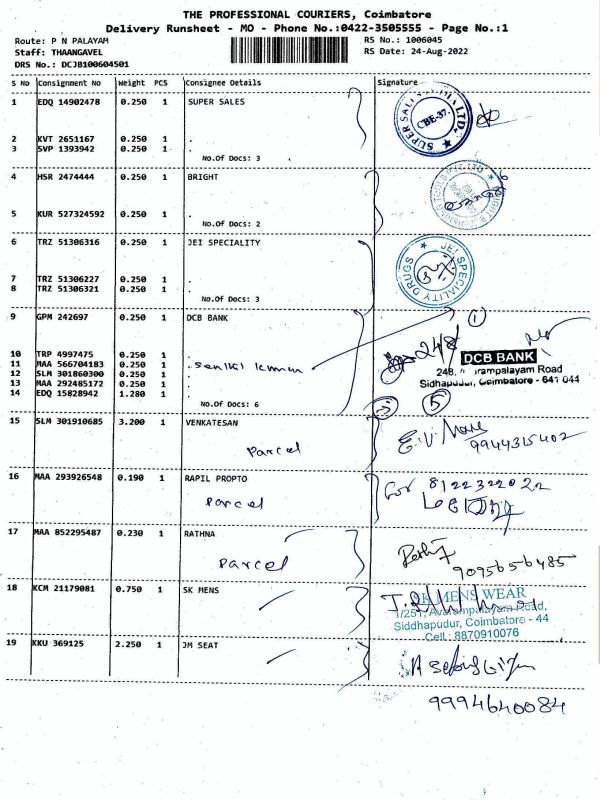 THE PROFESSIONAL COURIERS, Coimbatore
Delivery Runsheet - MO - Phone No.:0422-3505555 - Page No.:1
Route: P N PALAYAM RS No.: 1006045
Staff: THAANGAVEL RS Date: 24-Aug-2022
DRS No.: DCJB100604501
S No Consignment No Weight PCS Consignee Details Signature
1 EDQ 14902478 0.250 1 SUPER SALES
CBE-37.
2 KVT 2651167 0.250 1 .
3 SVP 1393942 0.250 1 .
No.Of Docs: 3
4 HSR 2474444 0.250 1 BRIGHT
5 KUR 527324592 0.250 1 .
No.Of Docs: 2
6 TRZ 51306316 0.250 1 JEI SPECIALITY
JEI SPECIALITY DRUGS
7 TRZ 51306227 0.250 1 .
8 TRZ 51306321 0.250 1 .
No.Of Docs: 3
9 GPM 242697 0.250 1 DCB BANK
1
24/8
DCB BANK
10 TRP 4997475 0.250 1 .
11 MAA 566704183 0.250 1 .
12 SLM 301860300 0.250 1 .
13 MAA 292485172 0.250 1 .
14 EDQ 15828942 1.280 1 .
248, Avarampalayam Road
Sidhapudur, Coimbatore - 641 044
No.Of Docs: 6
5
15 SLM 301910685 3.200 1 VENKATESAN
Parcel
9944315402
16 MAA 293926548 0.190 1 RAPIL PROPTO
Parcel
8122322022
17 MAA 852295487 0.230 1 RATHNA
Parcel
9095656485
18 KCM 21179081 0.750 1 SK MENS
SK MENS WEAR
1/251, Avarampalayam Road,
Siddhapudur, Coimbatore - 44
Cell : 8870910076
19 KKU 369125 2.250 1 JM SEAT
9994640084